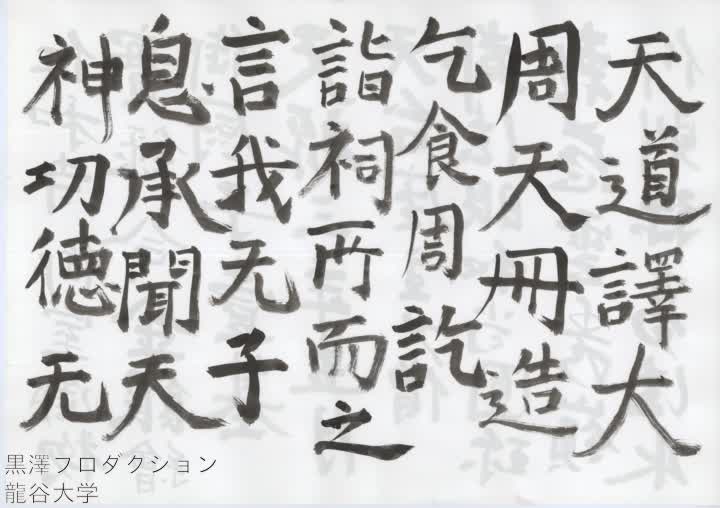 天道譯大
周天冊造
乞食周訖
詣祠所而之
言我无子
息承聞天
神功徳无
黒澤フロダクション
龍谷大学